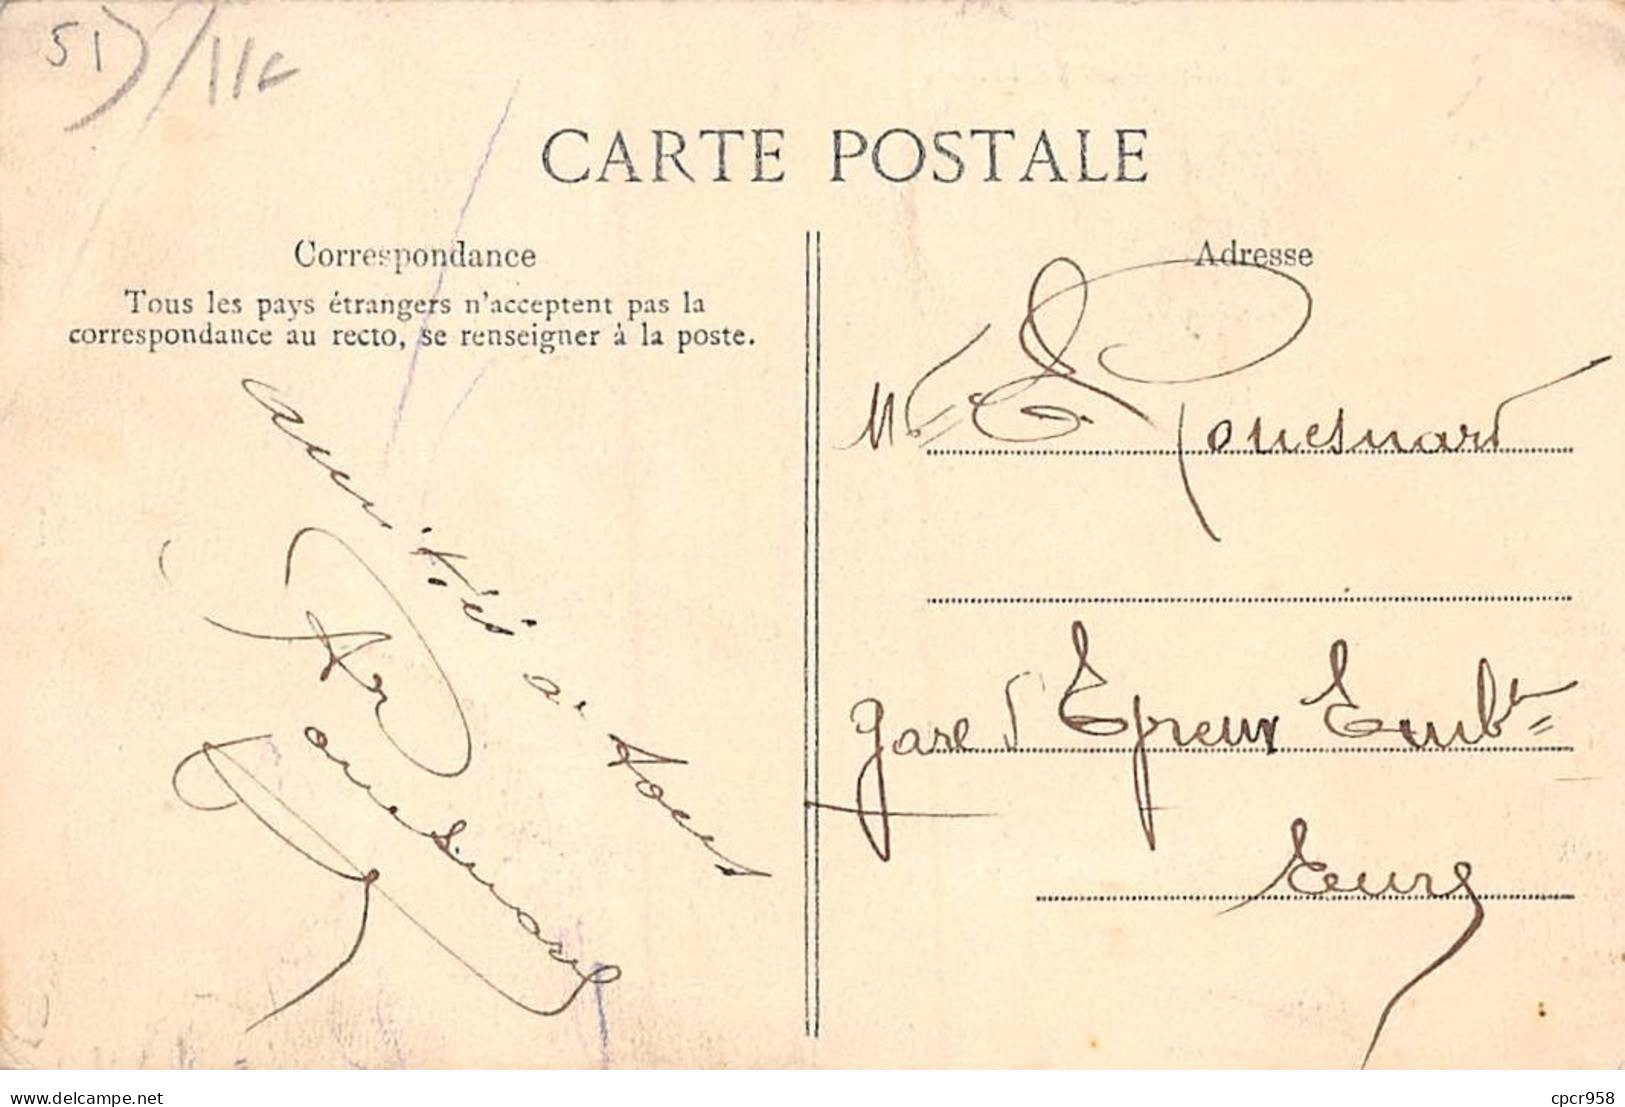 51) / 11c
CARTE POSTALE
Correspondance
Tous les pays étrangers n'acceptent pas la
correspondance au recto, se renseigner à la poste.
amitiés à tous
Adresse
Mr E Pouesnard
gare d'Epreux Embt
Eure
delcampe.net
cpcr958